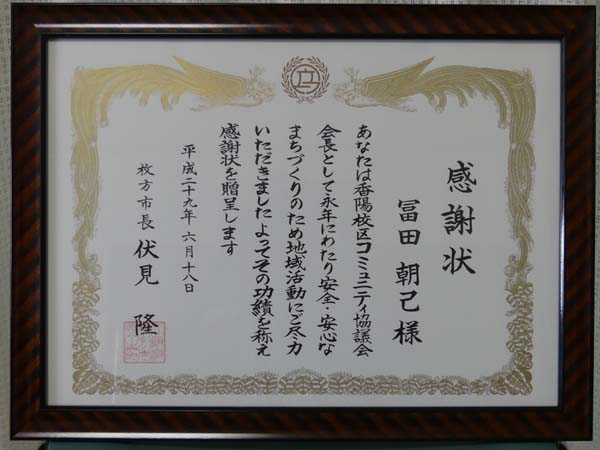 感謝状
冨田 朝己 様
あなたは香陽校区コミュニティ協議会
会長として永年にわたり安全・安心な
まちづくりのため地域活動にご尽力
いただきました よってその功績を称え
感謝状を贈呈します
平成二十九年 六月十八日
枚方市長 伏見 隆